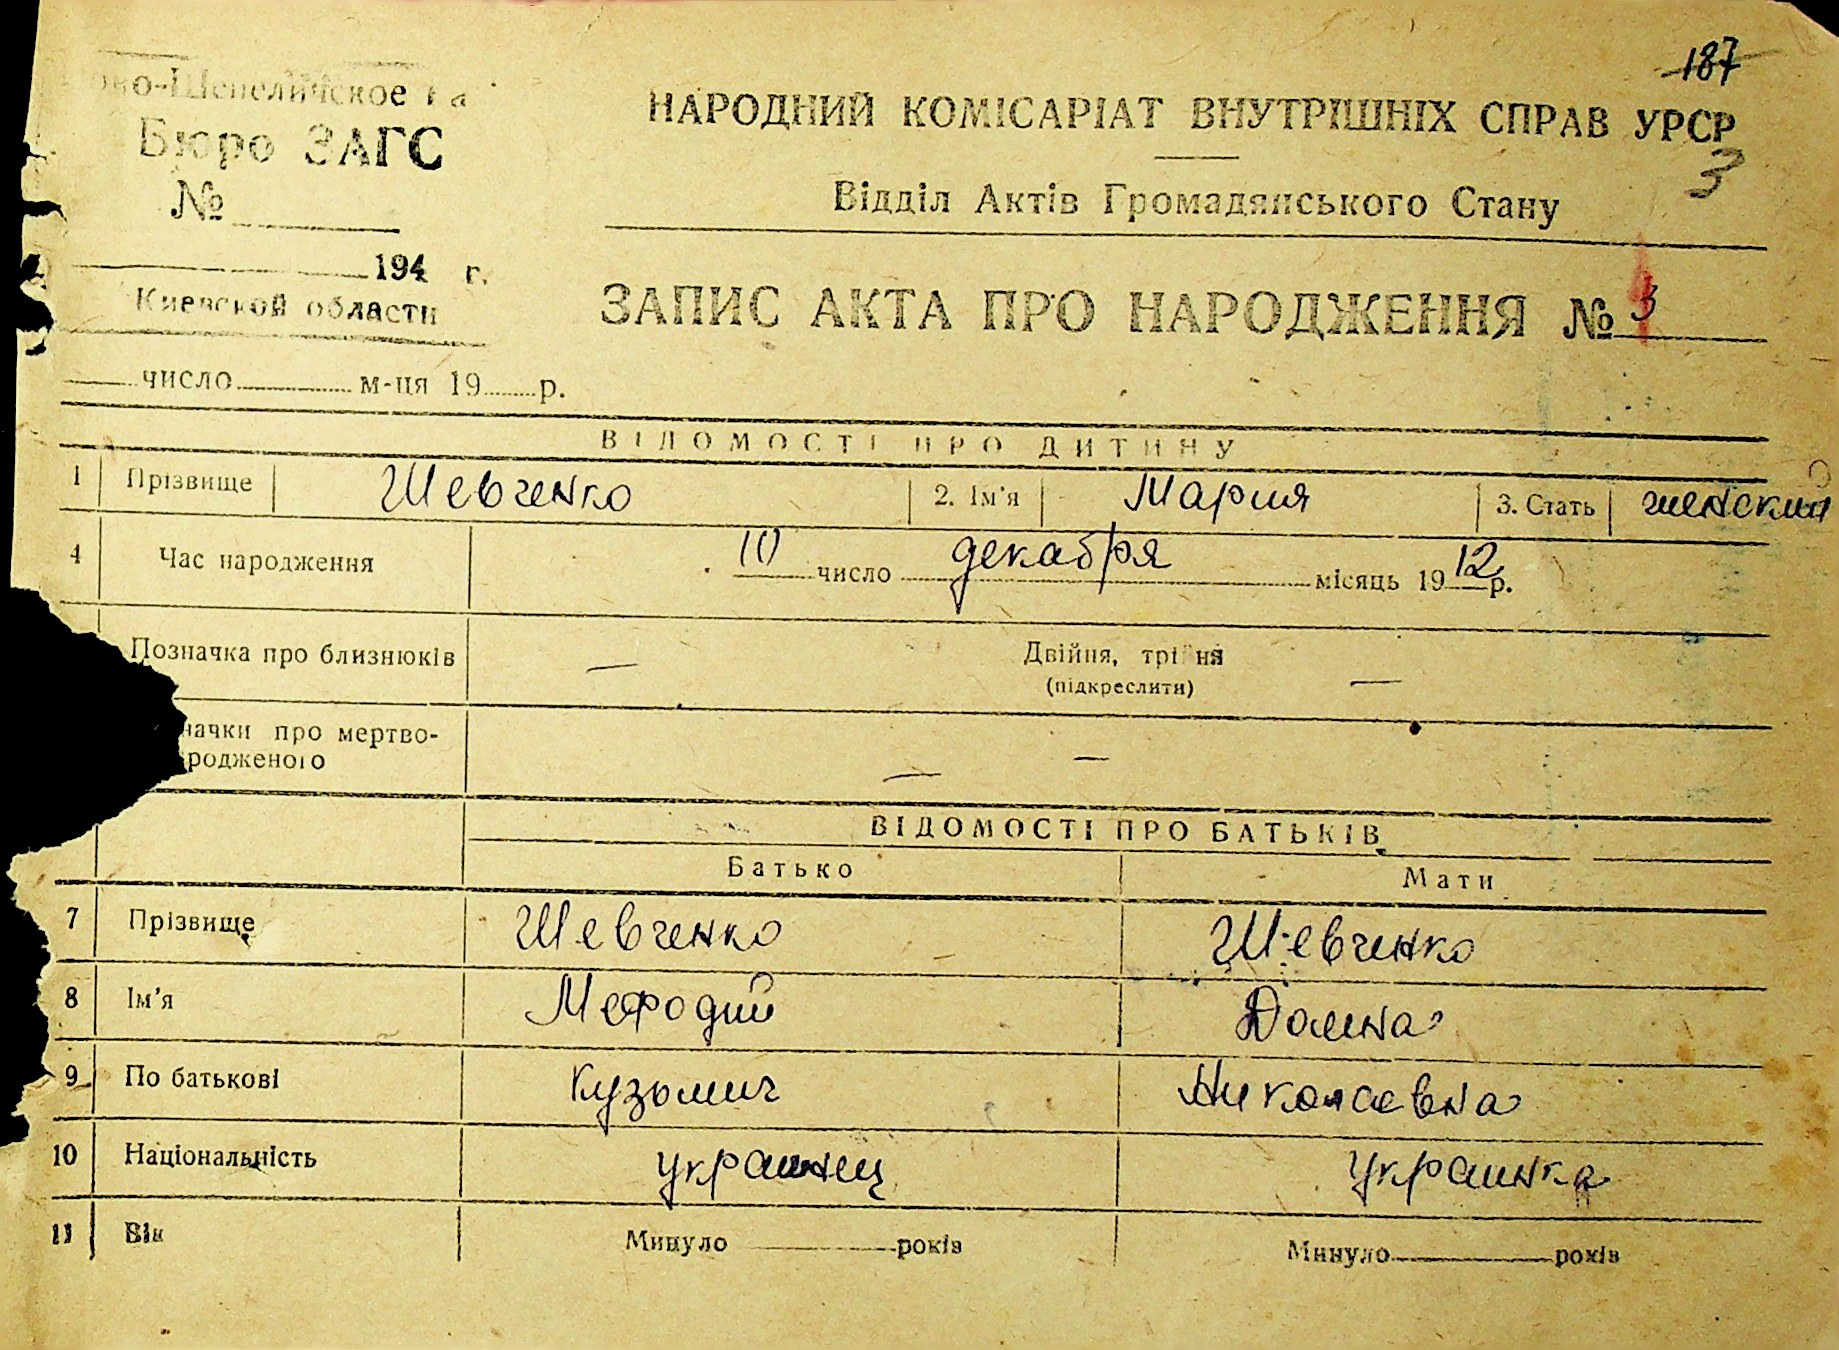 187
НАРОДНИЙ КОМІСАРІАТ ВНУТРІШНІХ СПРАВ УРСР
3
Відділ Актів Громадянського Стану
ово-Шепеличское
Бюро ЗАГС
№
194 г.
Киевской области
ЗАПИС АКТА ПРО НАРОДЖЕННЯ № 3
число м-ця 19 р.
ВІДОМОСТІ ПРО ДИТИНУ
1 Прізвище Шевченко 2. Ім'я Мария 3. Стать женский
4 Час народження 10 число декабря місяць 1912 р.
Позначка про близнюків — Двійня, трійня —
(підкреслити)
начки про мертво-
родженого — —
ВІДОМОСТІ ПРО БАТЬКІВ
Батько Мати
7 Прізвище Шевченко Шевченко
8 Ім'я Мефодий Домна
9 По батькові Кузьмич Николаевна
10 Національність украинец украинка
11 Вік Минуло років Минуло років